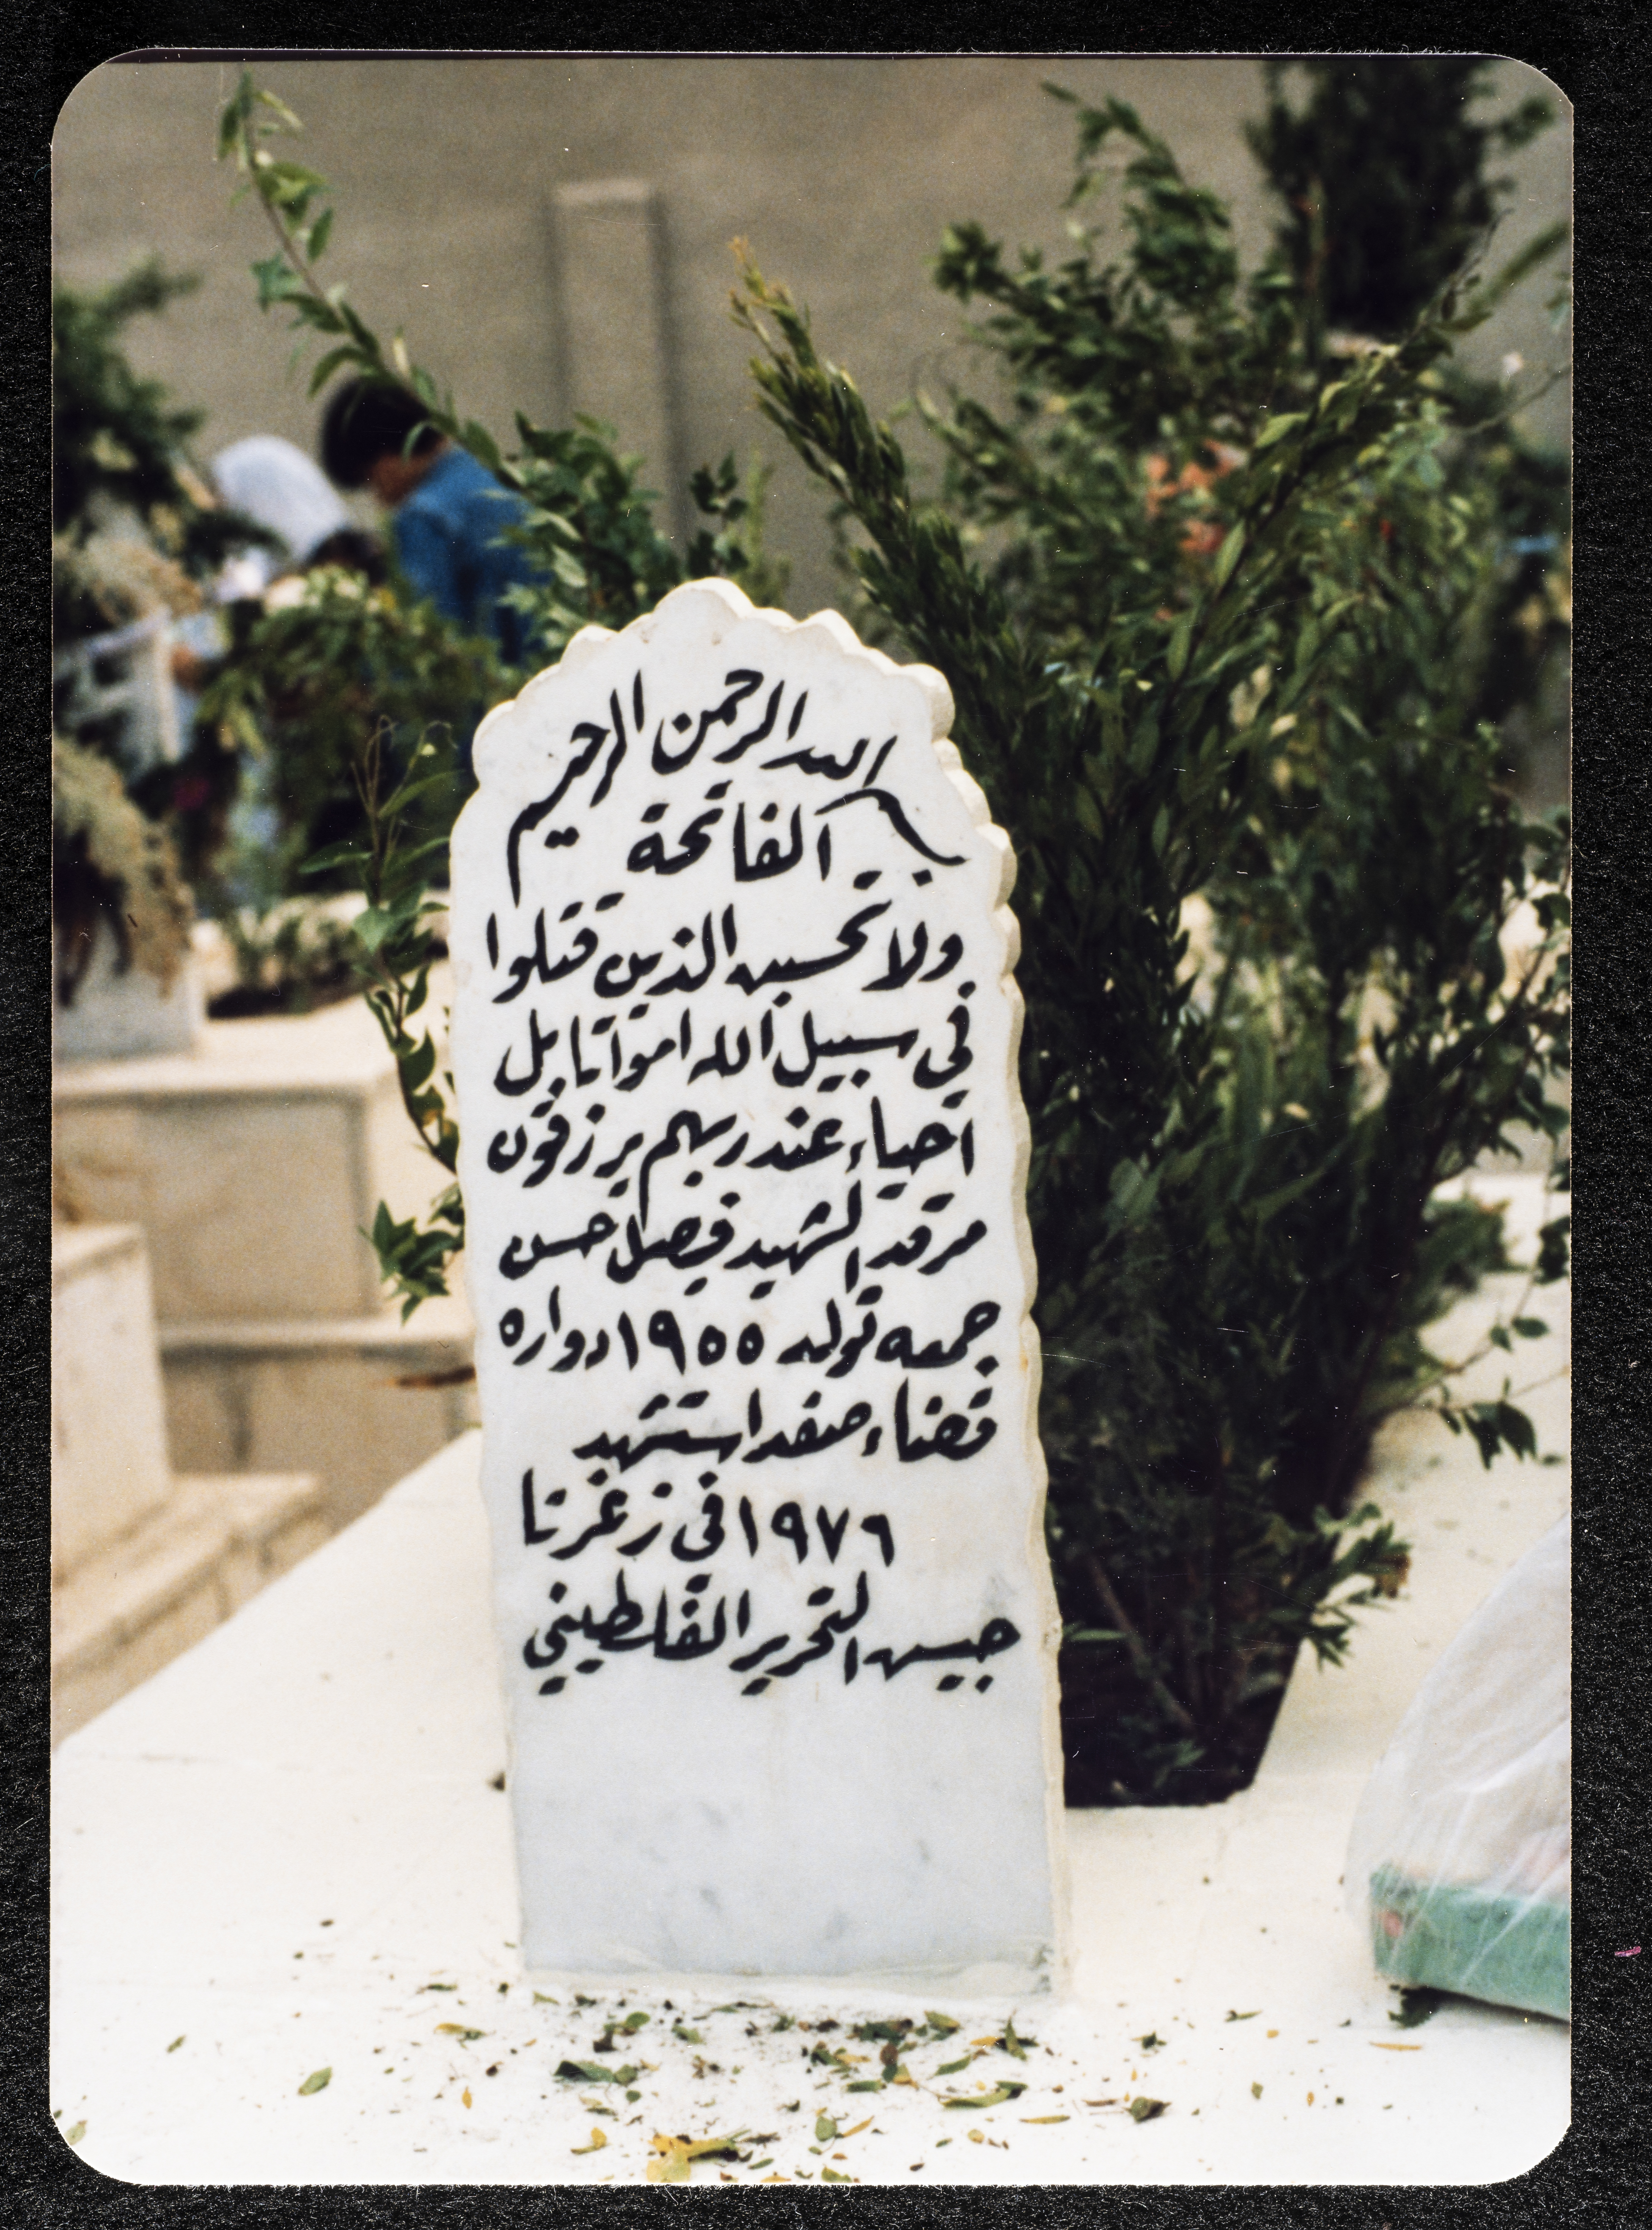 بسم الله الرحمن الرحيم
الفاتحة
ولا تحسبن الذين قتلوا
في سبيل الله امواتا بل
احياء عند ربهم يرزقون
مرقد الشهيد فيصل حسن
جمعه تولد ١٩٥٥ دواره
قضاء صفد استشهد
١٩٧٦ في زغرتا
جيش التحرير الفلسطيني